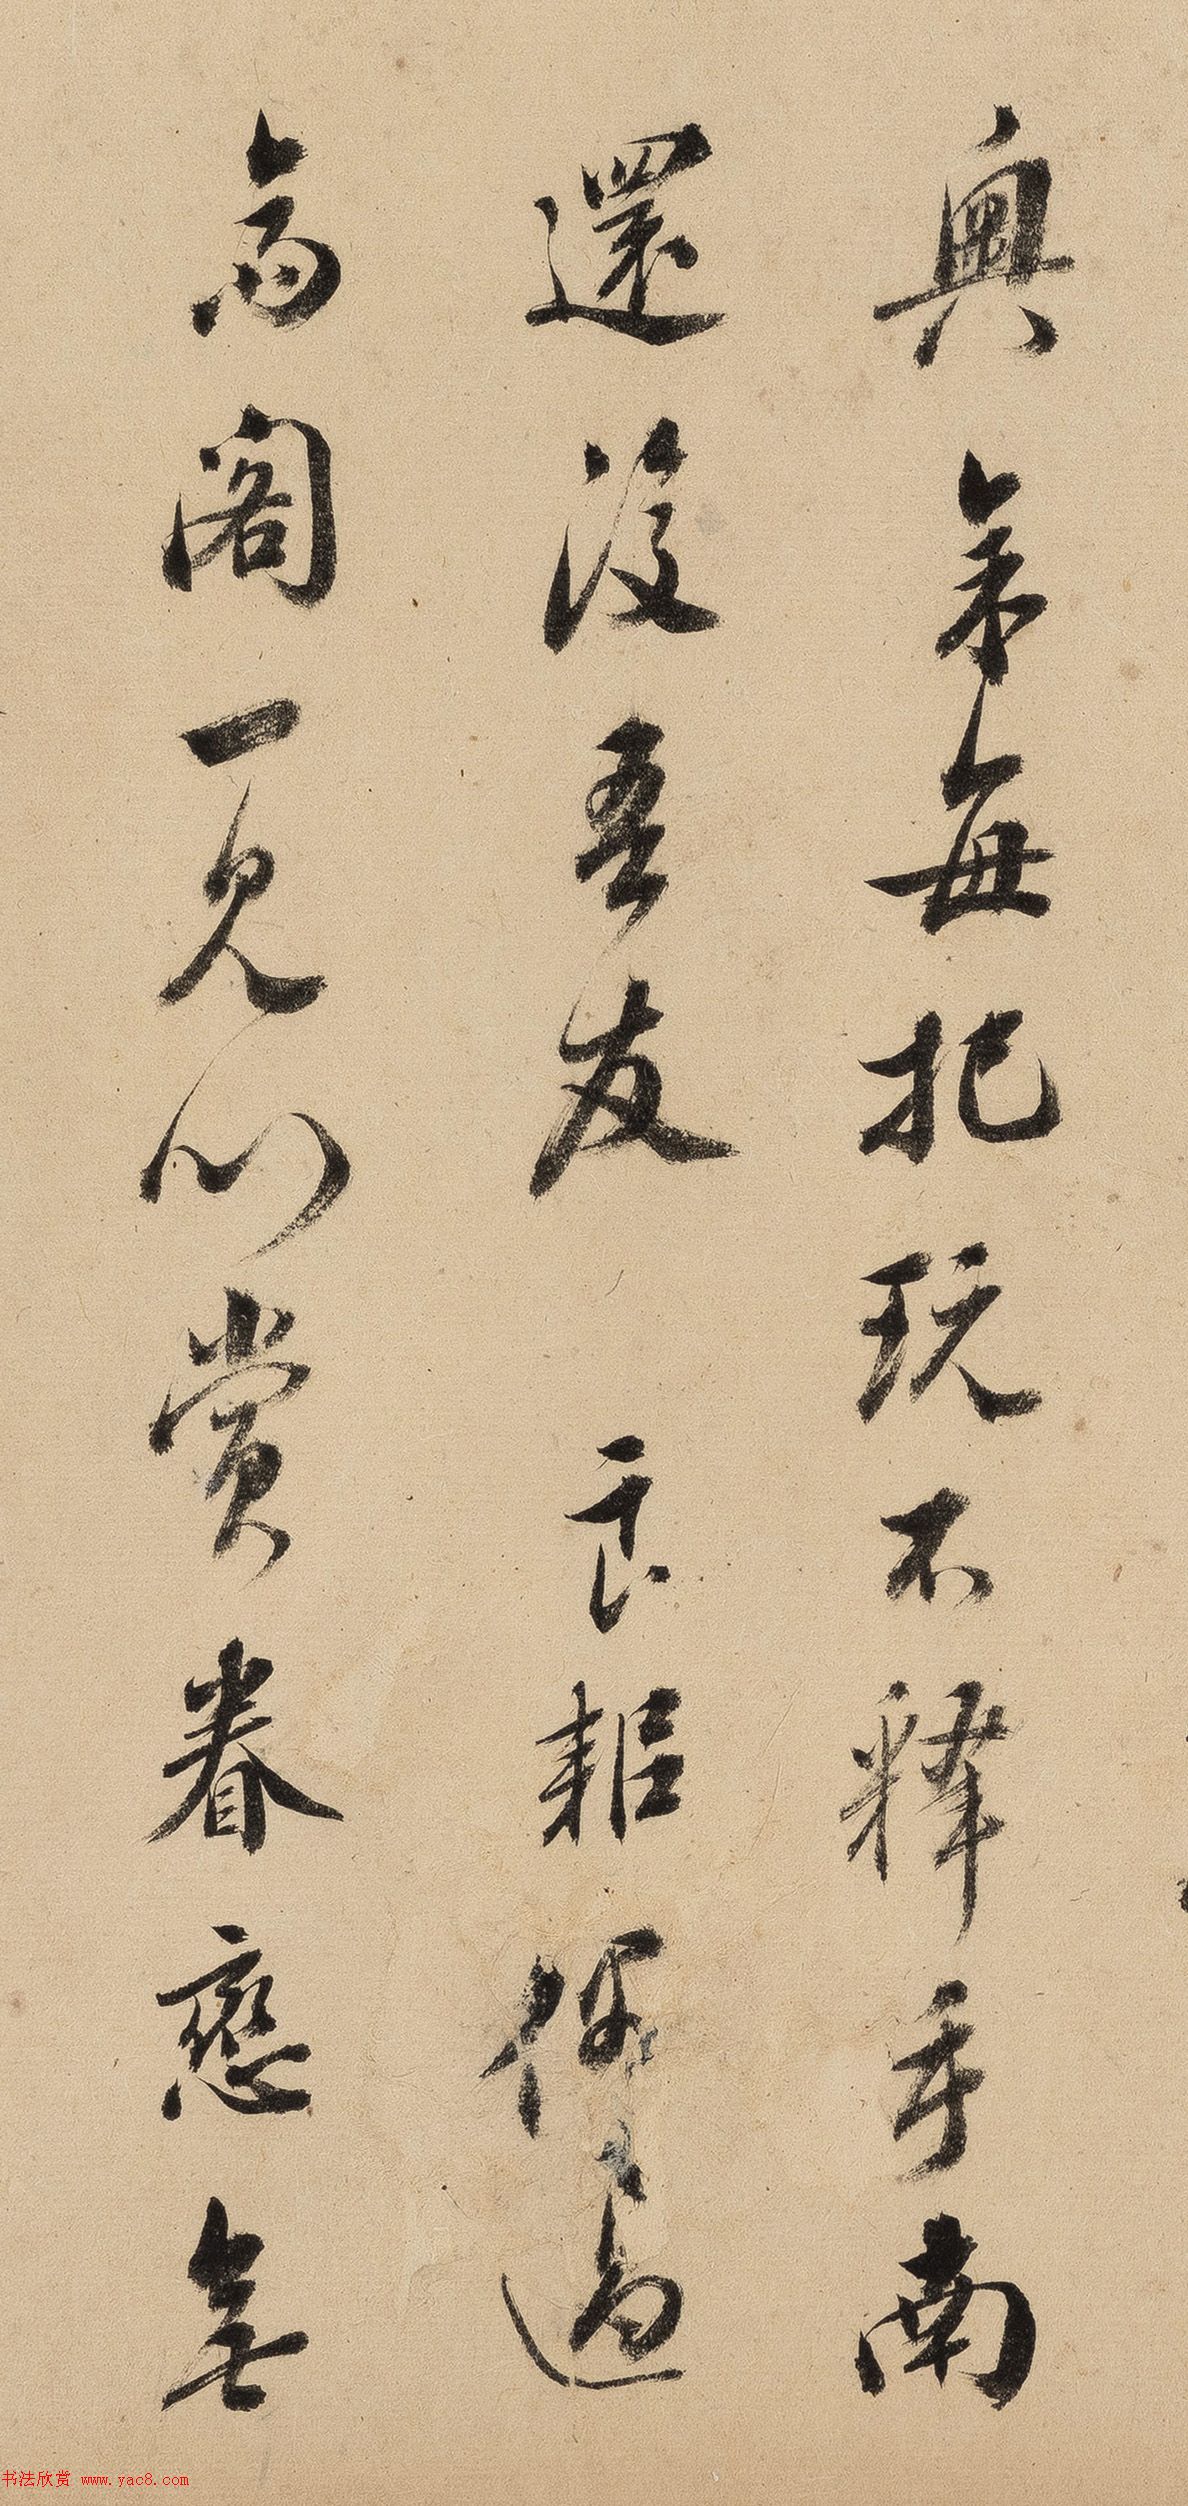 輿余每把玩不释手南
還後吾友良耜何過
高閣一見心賞眷戀無
书法欣赏 www.yac8.com